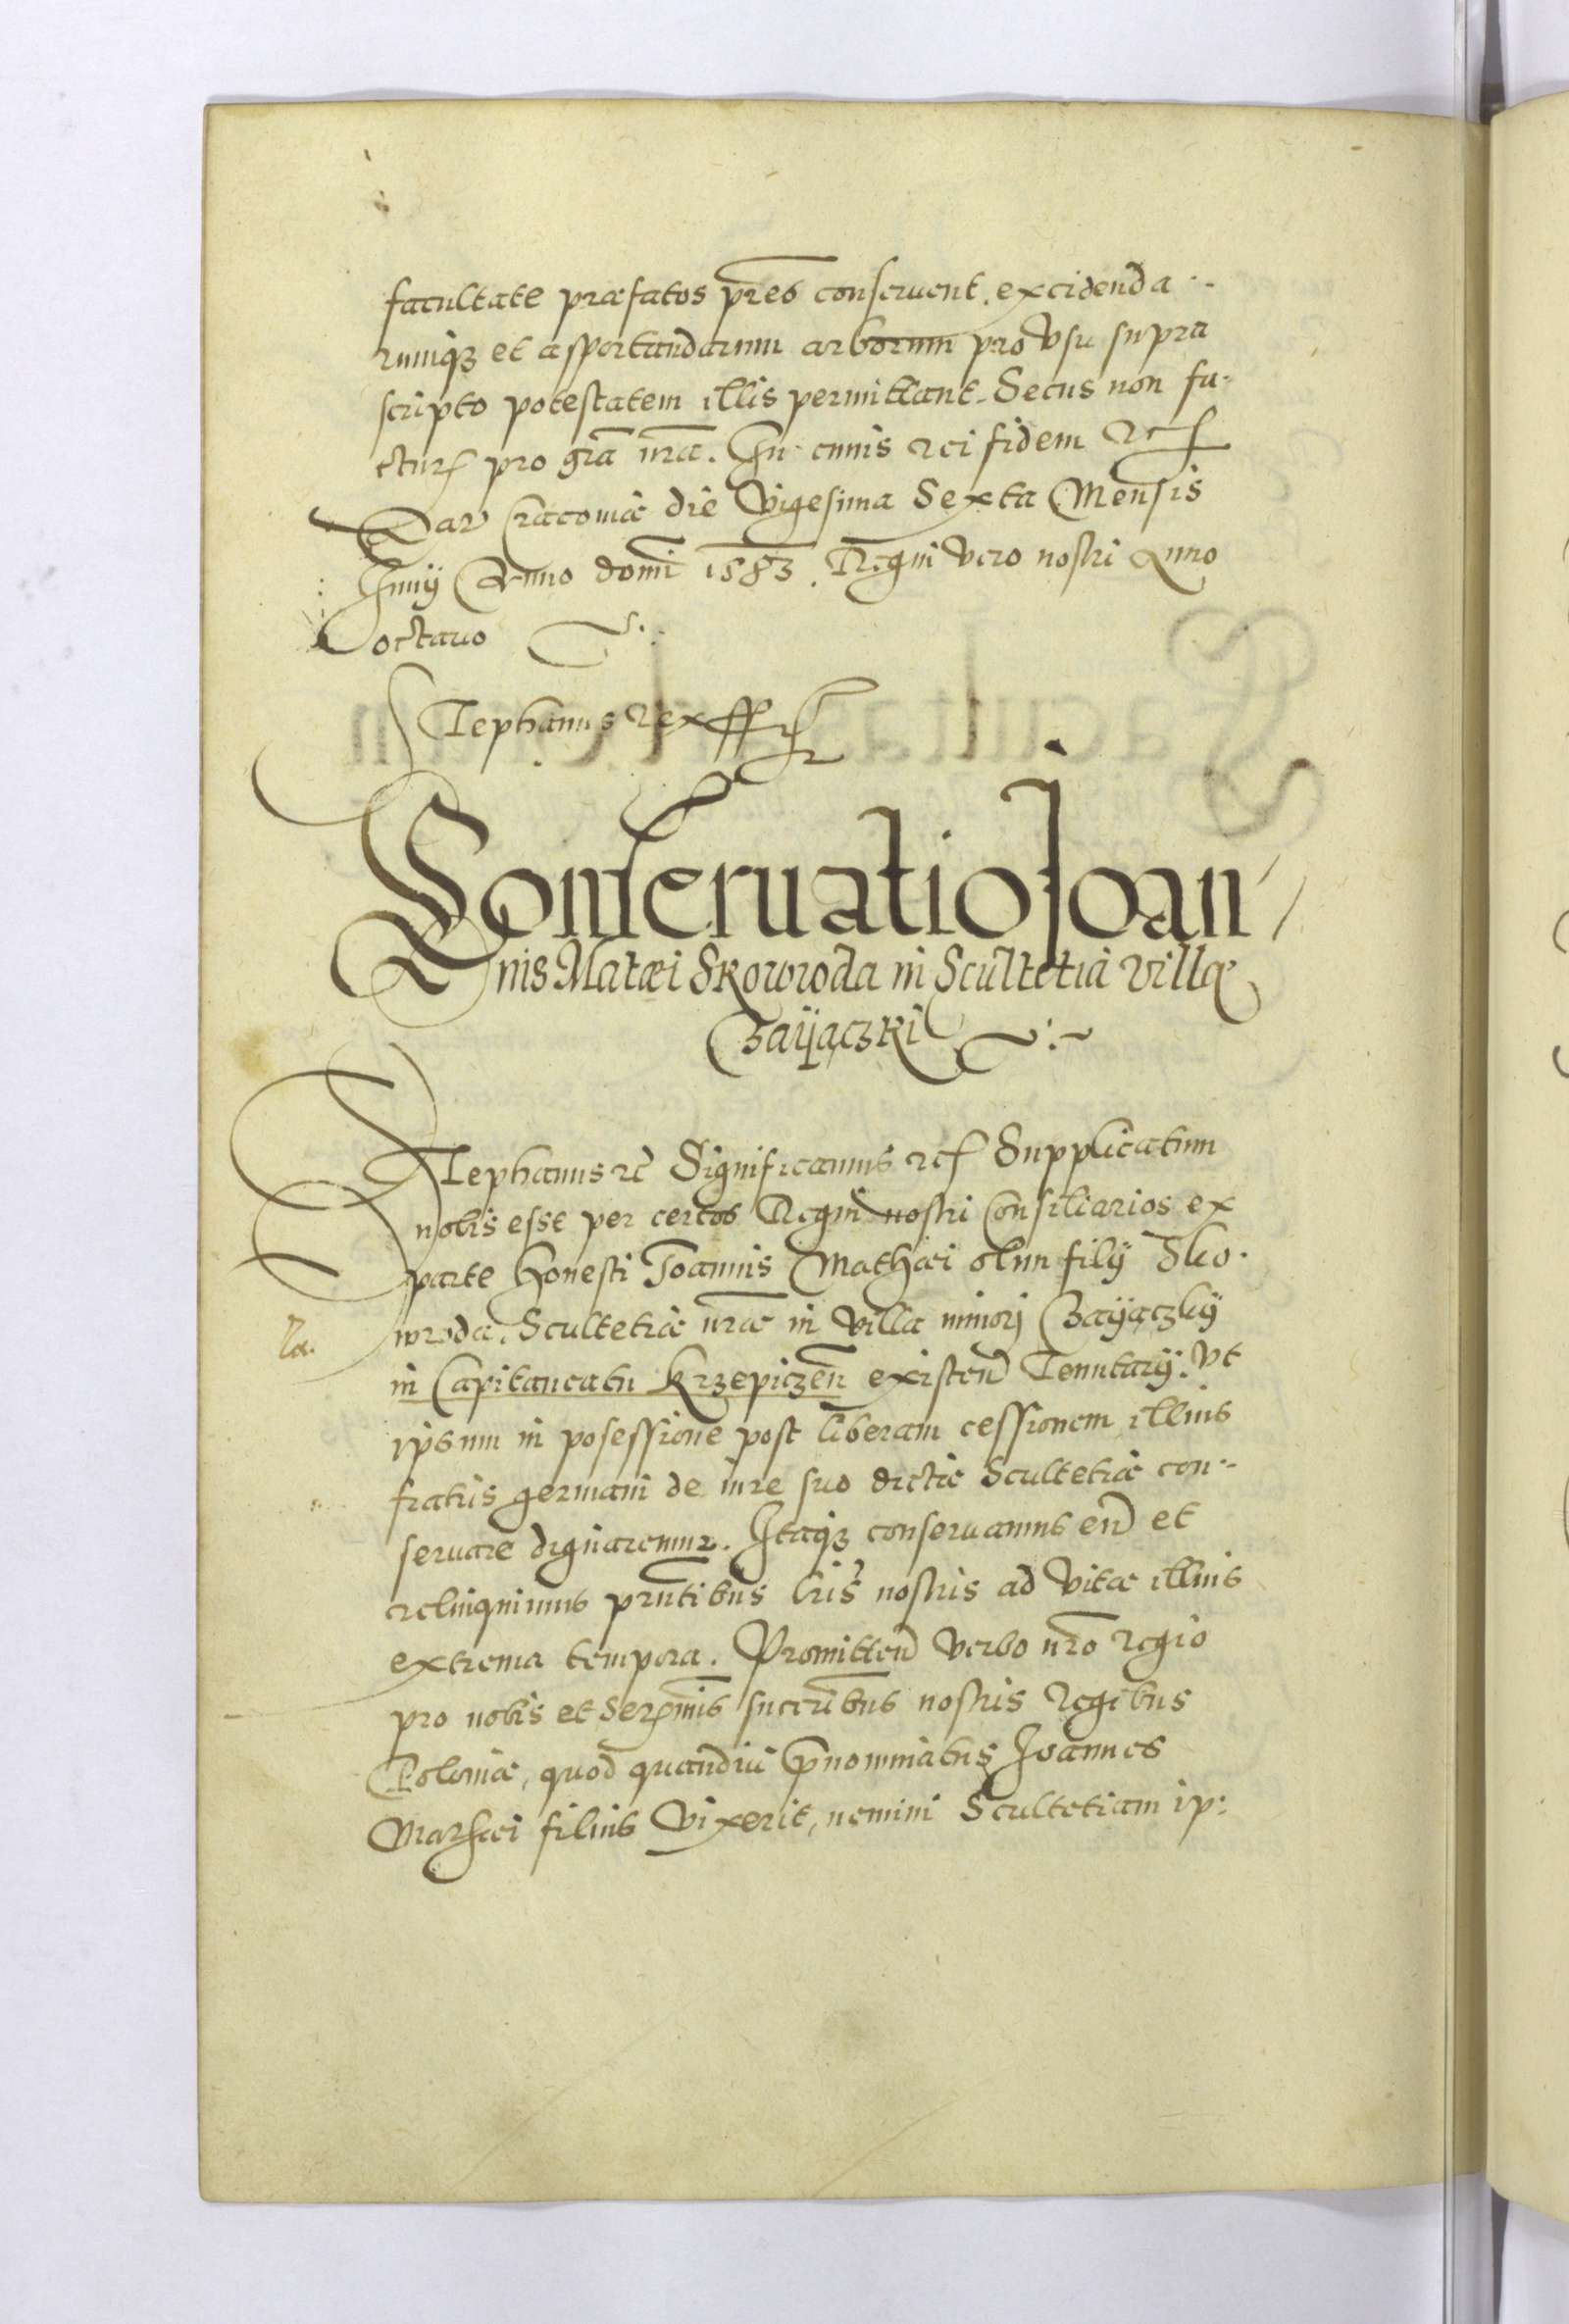 facultate præfatos pr̃es conseruent, excidenda-
rumq₃ et asportandarum arborum pro vsu supra
scripto potestatem illis permittant. Secus non fa-
ctur. pro gr̃a nr̃a. In cuius rei fidem etc
Dat Cracouiæ die Vigesima Sexta Mensis
Iunij Anno domi 1583. Regni vero nostri Anno
octauo
Stephanus Rex ssst
Conseruatio Joan-
nis Matæi Skowroda in Scultetia villæ
Zaÿączki
Stephanus etc Significamus etc Supplicatum
nobis esse per certos Regni nostri Consiliarios ex
parte honesti Joannis Mathæi olim filij Sko-
wroda, Scultetiæ nr̃æ in villa minori Zaÿączkÿ
in Capitaneatu Krzepiczen̄ existen̄ Tenutarÿ. Vt
ipsum in posessione post liberam cessionem illius
fratris germani de iure suo dictæ Scultetiæ con-
seruare dignaremur. Itaq₃ conseruamus eun̄d et
relinquimus prn̄tibus lr̃is nostris ad vitæ illius
extrema tempora. Promitten̄ verbo nr̃o regio
pro nobis et Ser̃mis succrībus nostris Regibus
Poloniæ, quod quandiu p̄nominatus Joannes
Mathæi filius vixerit, nemini Scultetiam ip: